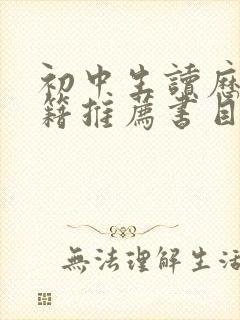 初中生讀歷
籍推薦書目
無法理解生活